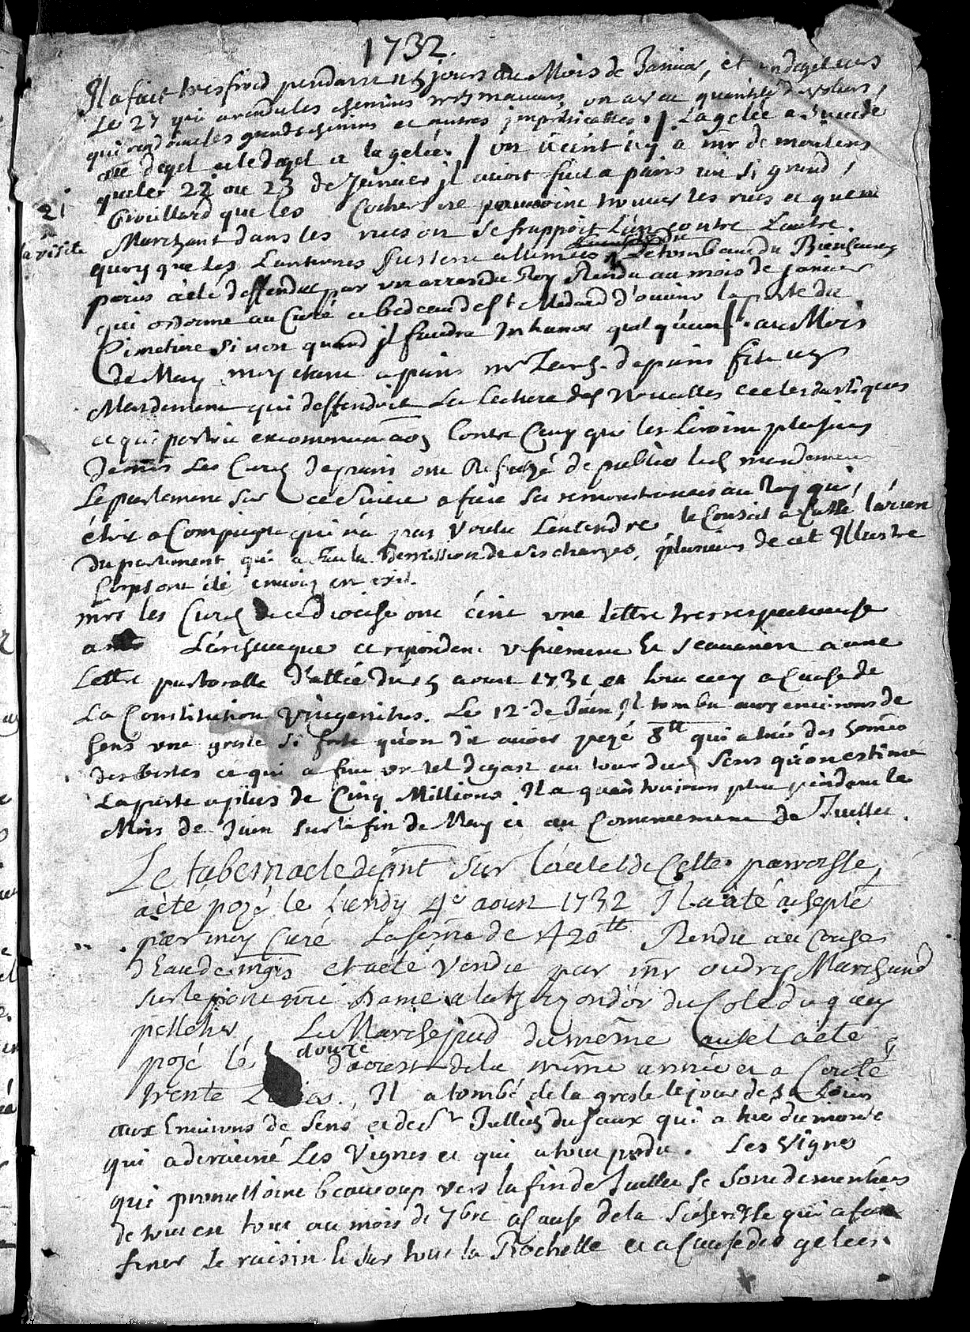 1732.
Il a fait tres froid pendant 15 jours du Mois de Janvier, et un degel vers
Le 27 qui a rendu les chemins tres mauvais, on a vu quantité de voleurs,
qui rendoient les grands chemins et autres impraticables. / La gelée a succedé
au degel et le degel a la gelée. / on ecrivit icy a mr de moulins
que le 22 ou 23 de Janvier il avoit fait a paris un si grand
21 Brouillard que les Cochers ne pouvoient trouver les rues et que en
la visite Marchant dans les rues on se frappoit L'un contre L'autre.
quoy que les Lanternes fussent allumées Le tombeau du Bienheureux
paris a eté deffendu par un arrest du Roy Rendu au mois de Janvier
qui ordonne au Curé et bedeau de St Medard d'ouvrir la porte du
Cimetiere Si non quand il faudra Inhumer quelqu'un /. au Mois
de May moy etant a paris mr L'arch. de paris fit un
Mandement qui deffendoit La Lecture des Nouvelles ecclesiastiques
et qui portoit excommunication Contre Ceux qui les Liroient plusieurs
de mrs Les Curés de paris ont Refusé de publier led. mandement
Le parlement sur ce Suiet a fait ses remontrances au Roy qui
étoit a Compiegne qui n'a pas Voulu L'entendre le Conseil a cassé l'arrest
du parlement qui a fait la demission de ses charges, plusieurs de cet Illustre
Corps ont été envoiez en exil.
mrs les Curés de ce diocese ont écrit une lettre tres respectueuse
a mr L'archeveque et repondent a une
Lettre pastoralle du 15 aoust 1731 et a Cause de
La Constitution Unigenitus. Le 12 de Juin Il tomba aux environs de
Sens une gresle Si forte qu'on dit avoir pezé 8tt qui a tué des homes
des bestes et qui a fait un tel degast au tour de Sens qu'on estime
La perte a plus de Cinq Millions Il a quasi toujours plu pendant le
Mois de Juin Sur la fin de May et au Commencement de Juillet.
Le tabernacle de pnt Sur l'autel de Cette parroisse
a eté pozé le Lundy 4e aoust 1732 Il a eté achepté
par moy Curé La some de 420tt Rendu au Conge
et a eté Vendu par mr oudry Marchand
Sur le pont nre Dame du Coté du quay
pelletier Le Marchepied du meme autel a eté
pozé le douze d'aoust de la mme année et a Couté
trente Il a tombé de la gresle le jour de St Louis
aux Environs de Sens et de St Jullien du Saux qui a tué du monde
qui a deraciné Les Vignes et qui a tout perdu. Les Vignes
qui promettoient beaucoup vers la fin de Juillet se sont dementies
de tout en tout au mois de 7bre a Cause de la Secheresse qui a fait
finer le raisin Sur tout la Rochelle et a Cause des gelées